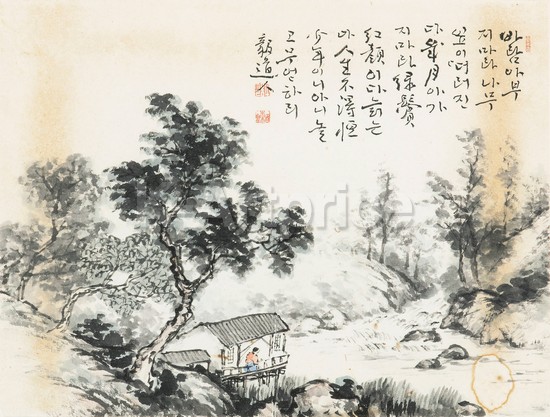 바람아부
지마라나무
꼿이떠러진
다歲月아가
지마라綠鬢
紅顔이다늙는
다人生不得恒
少年이니아니놀
고무엇하리
毅道人